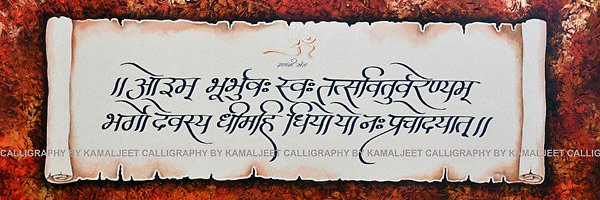 ॐ
गायत्री मंत्र
॥ ओ३म् भूर्भुवः स्वः तत्सवितुर्वरेण्यम्
भर्गो देवस्य धीमहि धियो यो नः प्रचोदयात् ॥
CALLIGRAPHY BY KAMALJEET CALLIGRAPHY BY KAMALJEET CALLIGRAPHY BY KAMALJEET CALLIGRAPHY BY KAMALJEET CALLIG